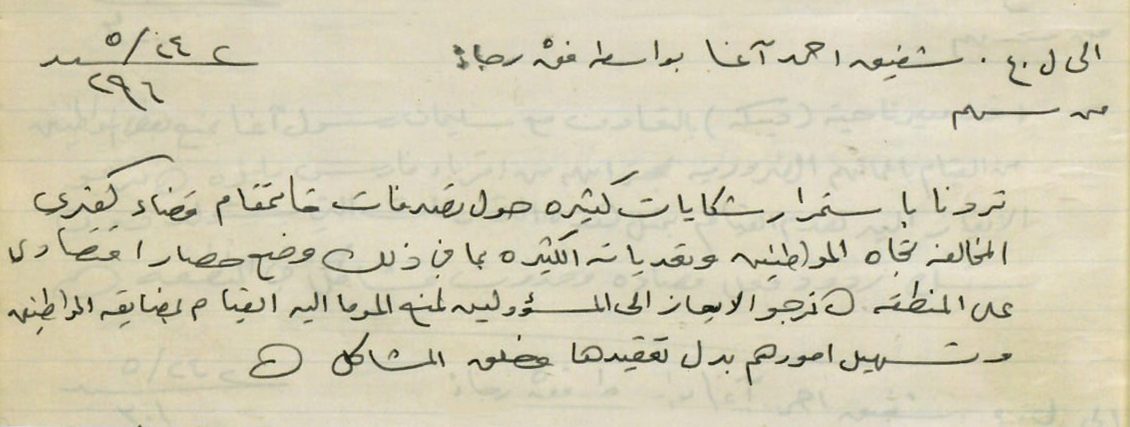 الى ل.ع. شفيق احمد آغا بواسطة فقه رجاء
٢٤/٥
٢٩٦
من
تردنا باستمرار شكايات كثيره حول تصرفات قائمقام قضاء كفري
المخالفه تجاه المواطنين وتعدياته الكثيره بما في ذلك وضع حصار اقتصادي
على المنطقه نرجو الايعاز الى المسؤولين لمنع الموما اليه القيام بمضايقه المواطنين
وتسهيل امورهم بدل تعقيدها وخلق المشاكل